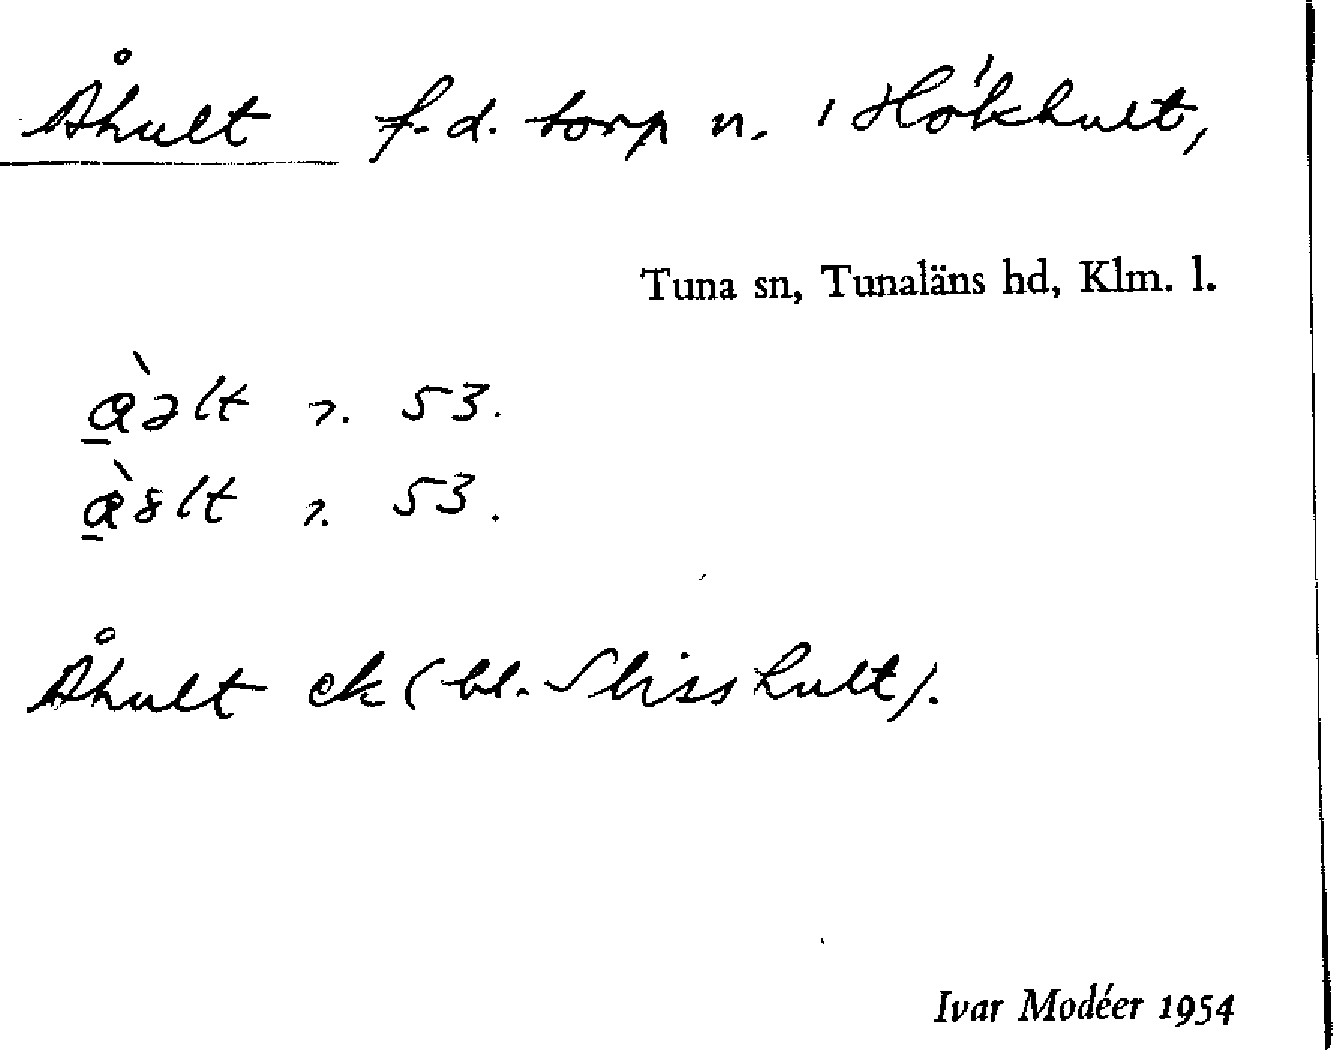 Åhult f.d. torp n. 'Hökhult,
Tuna sn, Tunaläns hd, Klm. l.
à̱əlt 53.
à̱8lt 53.
Åhult ek (bl. Slisshult).
Ivar Modéer 1954